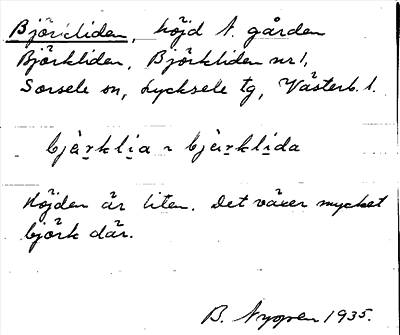 Björkliden, höjd t. gården
Björkliden, Björkliden nr 1,
Sorsele sn, Lycksele tg, Västerb. l.
bjä̀rkli̱a ~ bjä̀rkli̱da
Höjden är liten. Det växer mycket
björk där.
B. Nygren 1935.